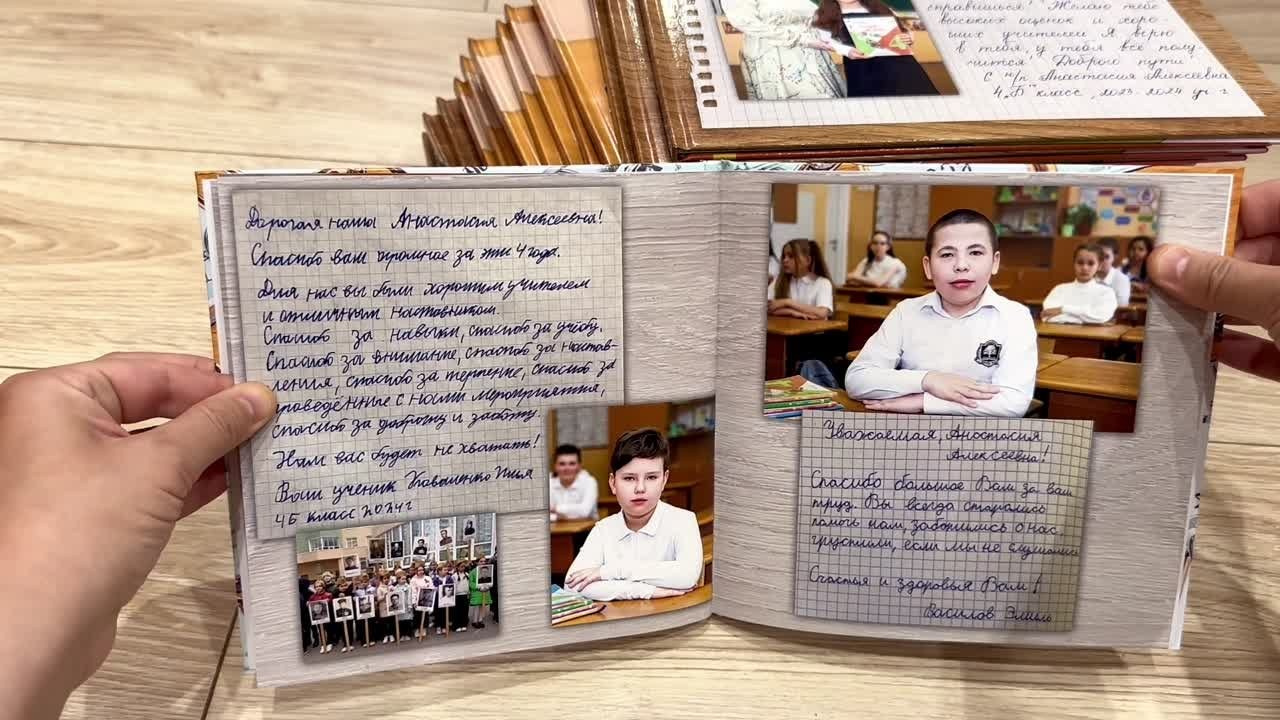 справишься! Желаю тебе
высоких оценок и хоро-
ших учителей. Я верю
в тебя, у тебя всё полу-
чится! Доброго пути!
Анастасия Алексеевна
4 "Б" класс, 2023-2024 уч. г
Дорогая наша Анастасия Алексеевна!
Спасибо вам огромное за эти 4 года.
Для нас вы были хорошим учителем
и отличным наставником.
Спасибо за навыки, спасибо за учёбу.
Спасибо за внимание, спасибо за настав-
ления, спасибо за терпение, спасибо за
проведённые с нами мероприятия,
спасибо за доброту и заботу.
Нам вас будет не хватать!
Ваш ученик Коваленко Илья
4Б класс 2024г
Уважаемая Анастасия
Алексеевна!
Спасибо большое Вам за ваш
труд. Вы всегда старались
помочь нам, заботились о нас,
грустили, если мы не слушались
Счастья и здоровья Вам!
Василов